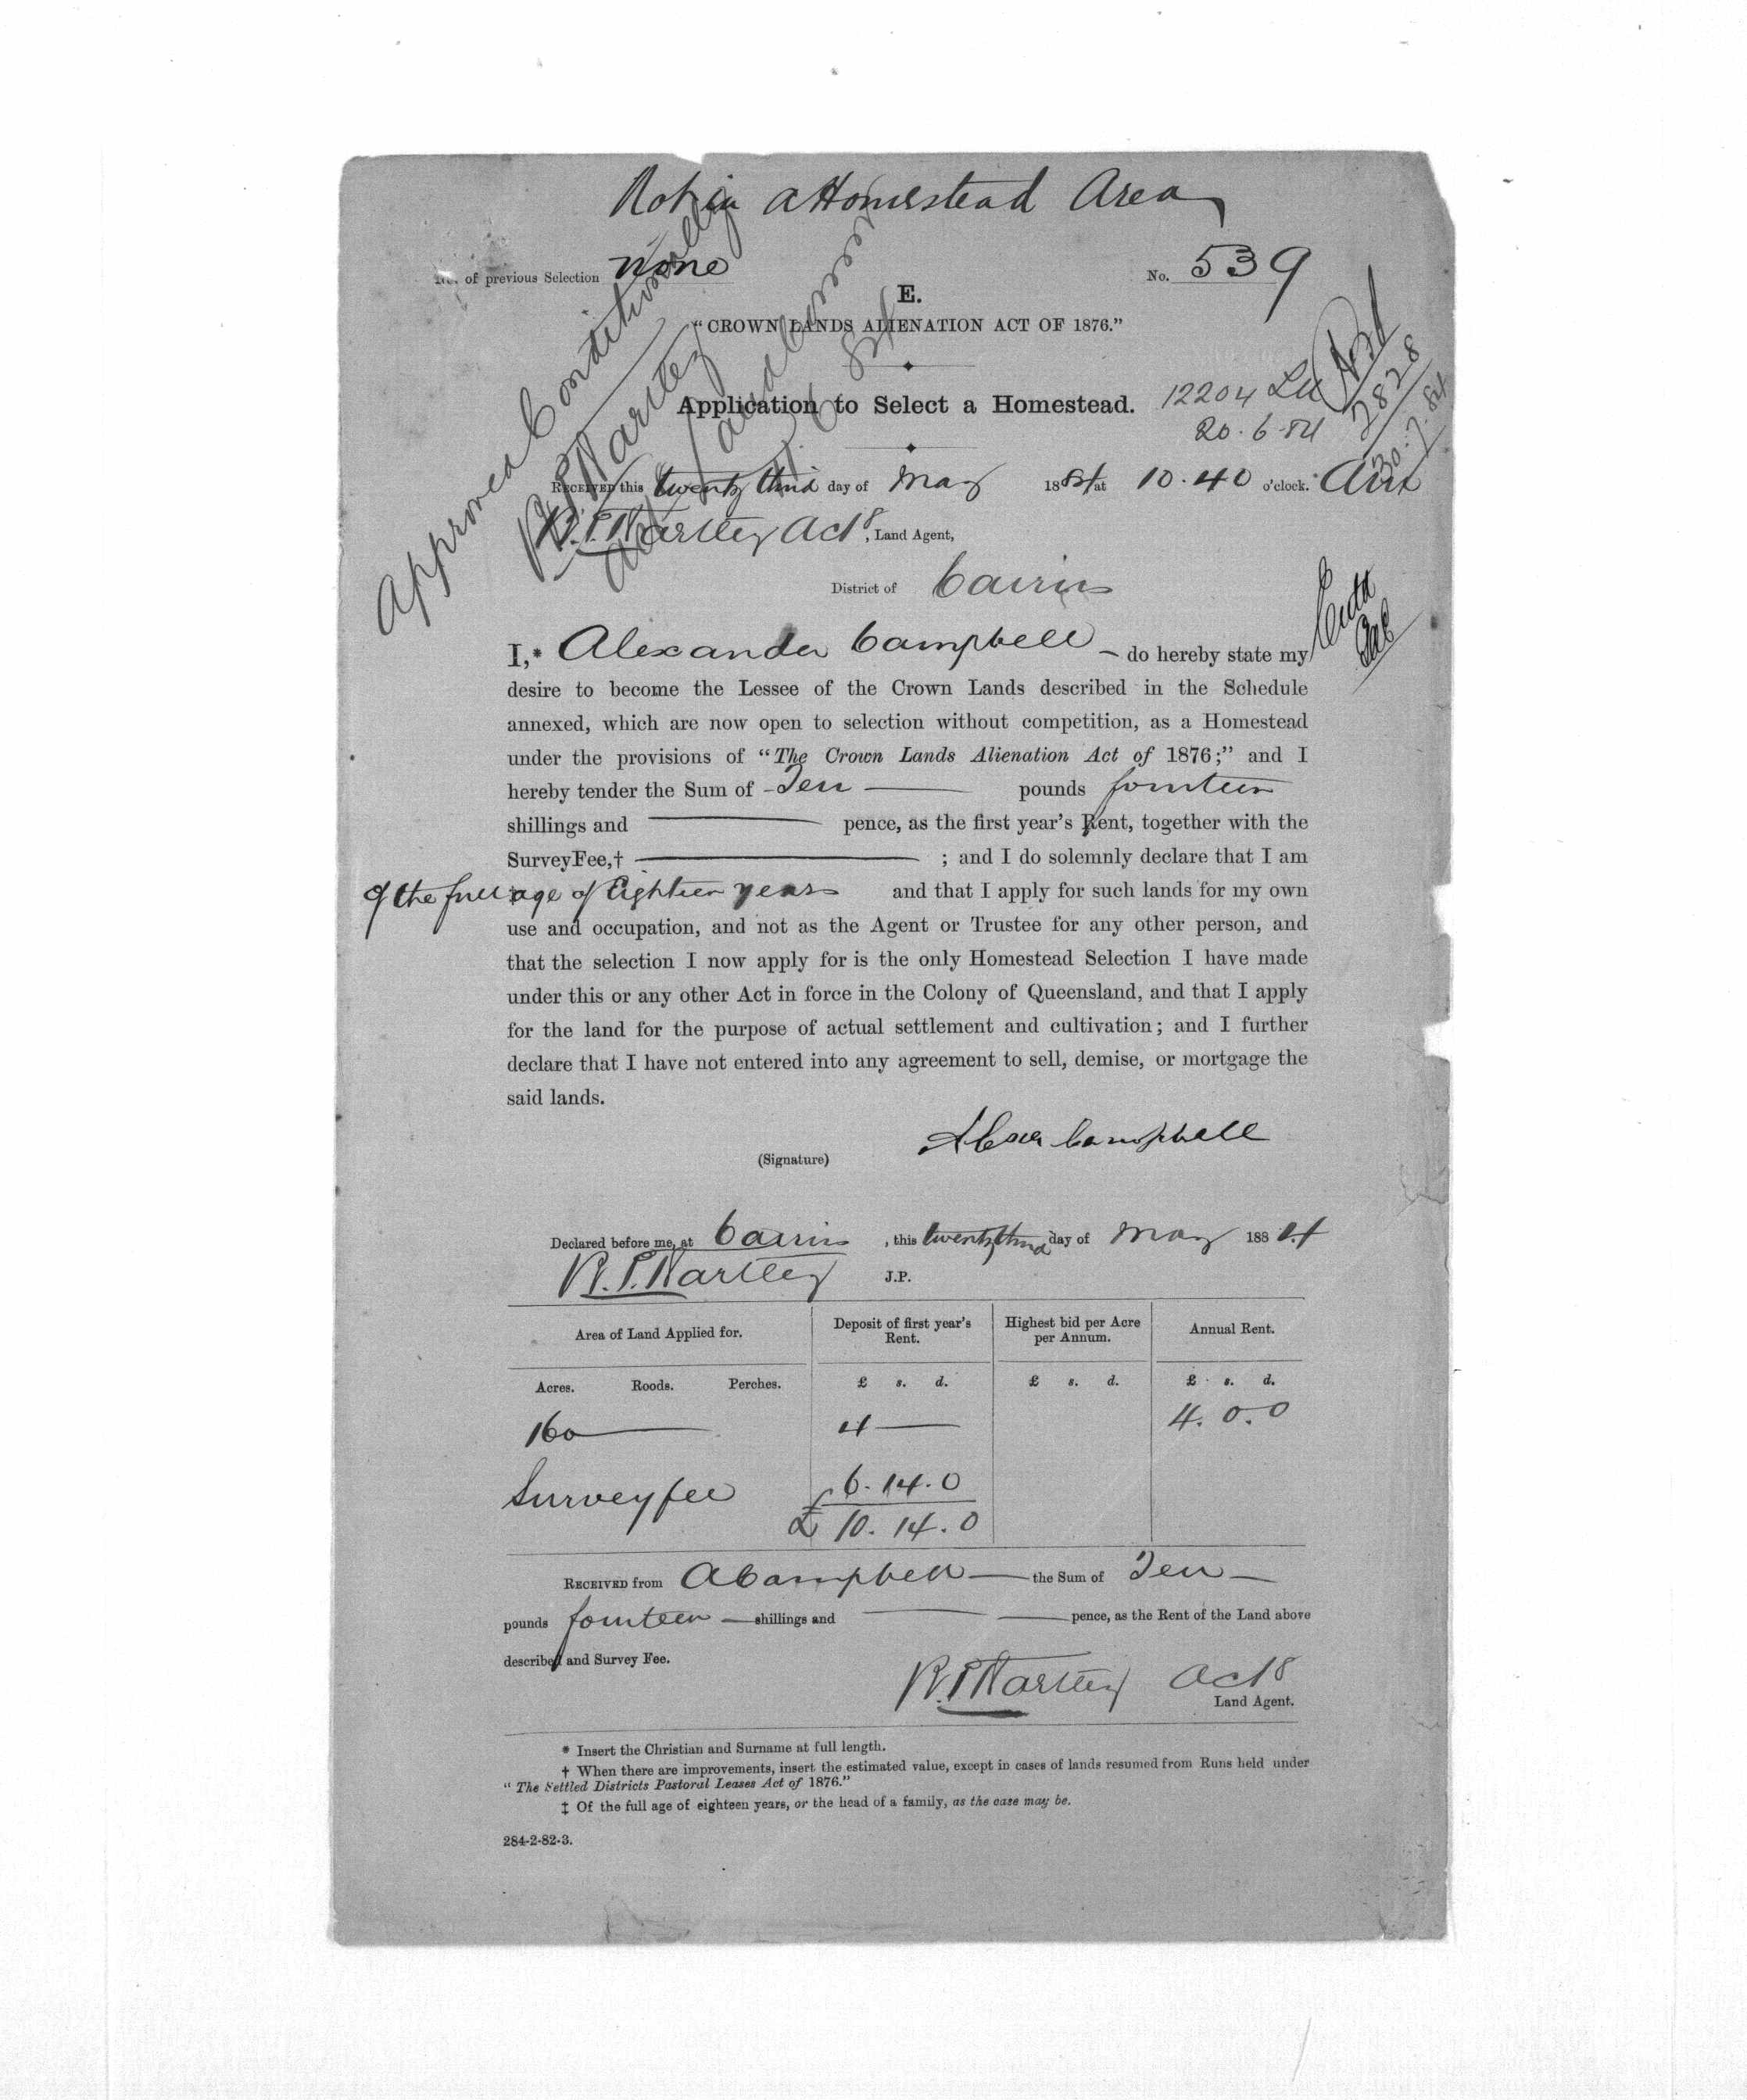 Not in a Homestead Area
No. of previous Selection none
No. 539
E.
“CROWN LANDS ALIENATION ACT OF 1876.”
Application to Select a Homestead.
12204
20.6.84
2828
30.7.84
Approved Conditionally
R.T. Hartley
and Comr
RECEIVED this twenty third day of May 1884 at 10.40 o'clock.
R.T. Hartley Actg, Land Agent,
District of Cairns
I,* Alexander Campbell — do hereby state my
desire to become the Lessee of the Crown Lands described in the Schedule
annexed, which are now open to selection without competition, as a Homestead
under the provisions of “The Crown Lands Alienation Act of 1876;” and I
hereby tender the Sum of - Ten — pounds fourteen
shillings and — pence, as the first year's Rent, together with the
Survey Fee,† — ; and I do solemnly declare that I am
of the full age of Eighteen years and that I apply for such lands for my own
use and occupation, and not as the Agent or Trustee for any other person, and
that the selection I now apply for is the only Homestead Selection I have made
under this or any other Act in force in the Colony of Queensland, and that I apply
for the land for the purpose of actual settlement and cultivation; and I further
declare that I have not entered into any agreement to sell, demise, or mortgage the
said lands.
Alexr Campbell
(Signature)
Declared before me, at Cairns, this twenty third day of May 1884
R.T. Hartley J.P.
Area of Land Applied for. Deposit of first year's Rent. Highest bid per Acre per Annum. Annual Rent.
Acres. Roods. Perches. £ s. d. £ s. d. £ s. d.
160 — 4 — 4.0.0
Survey fee 6.14.0
£ 10.14.0
RECEIVED from A Campbell — the Sum of Ten —
pounds fourteen — shillings and — pence, as the Rent of the Land above
described and Survey Fee.
R.T. Hartley Actg
Land Agent.
* Insert the Christian and Surname at full length.
† When there are improvements, insert the estimated value, except in cases of lands resumed from Runs held under
“The Settled Districts Pastoral Leases Act of 1876.”
‡ Of the full age of eighteen years, or the head of a family, as the case may be.
284-2-82-3.